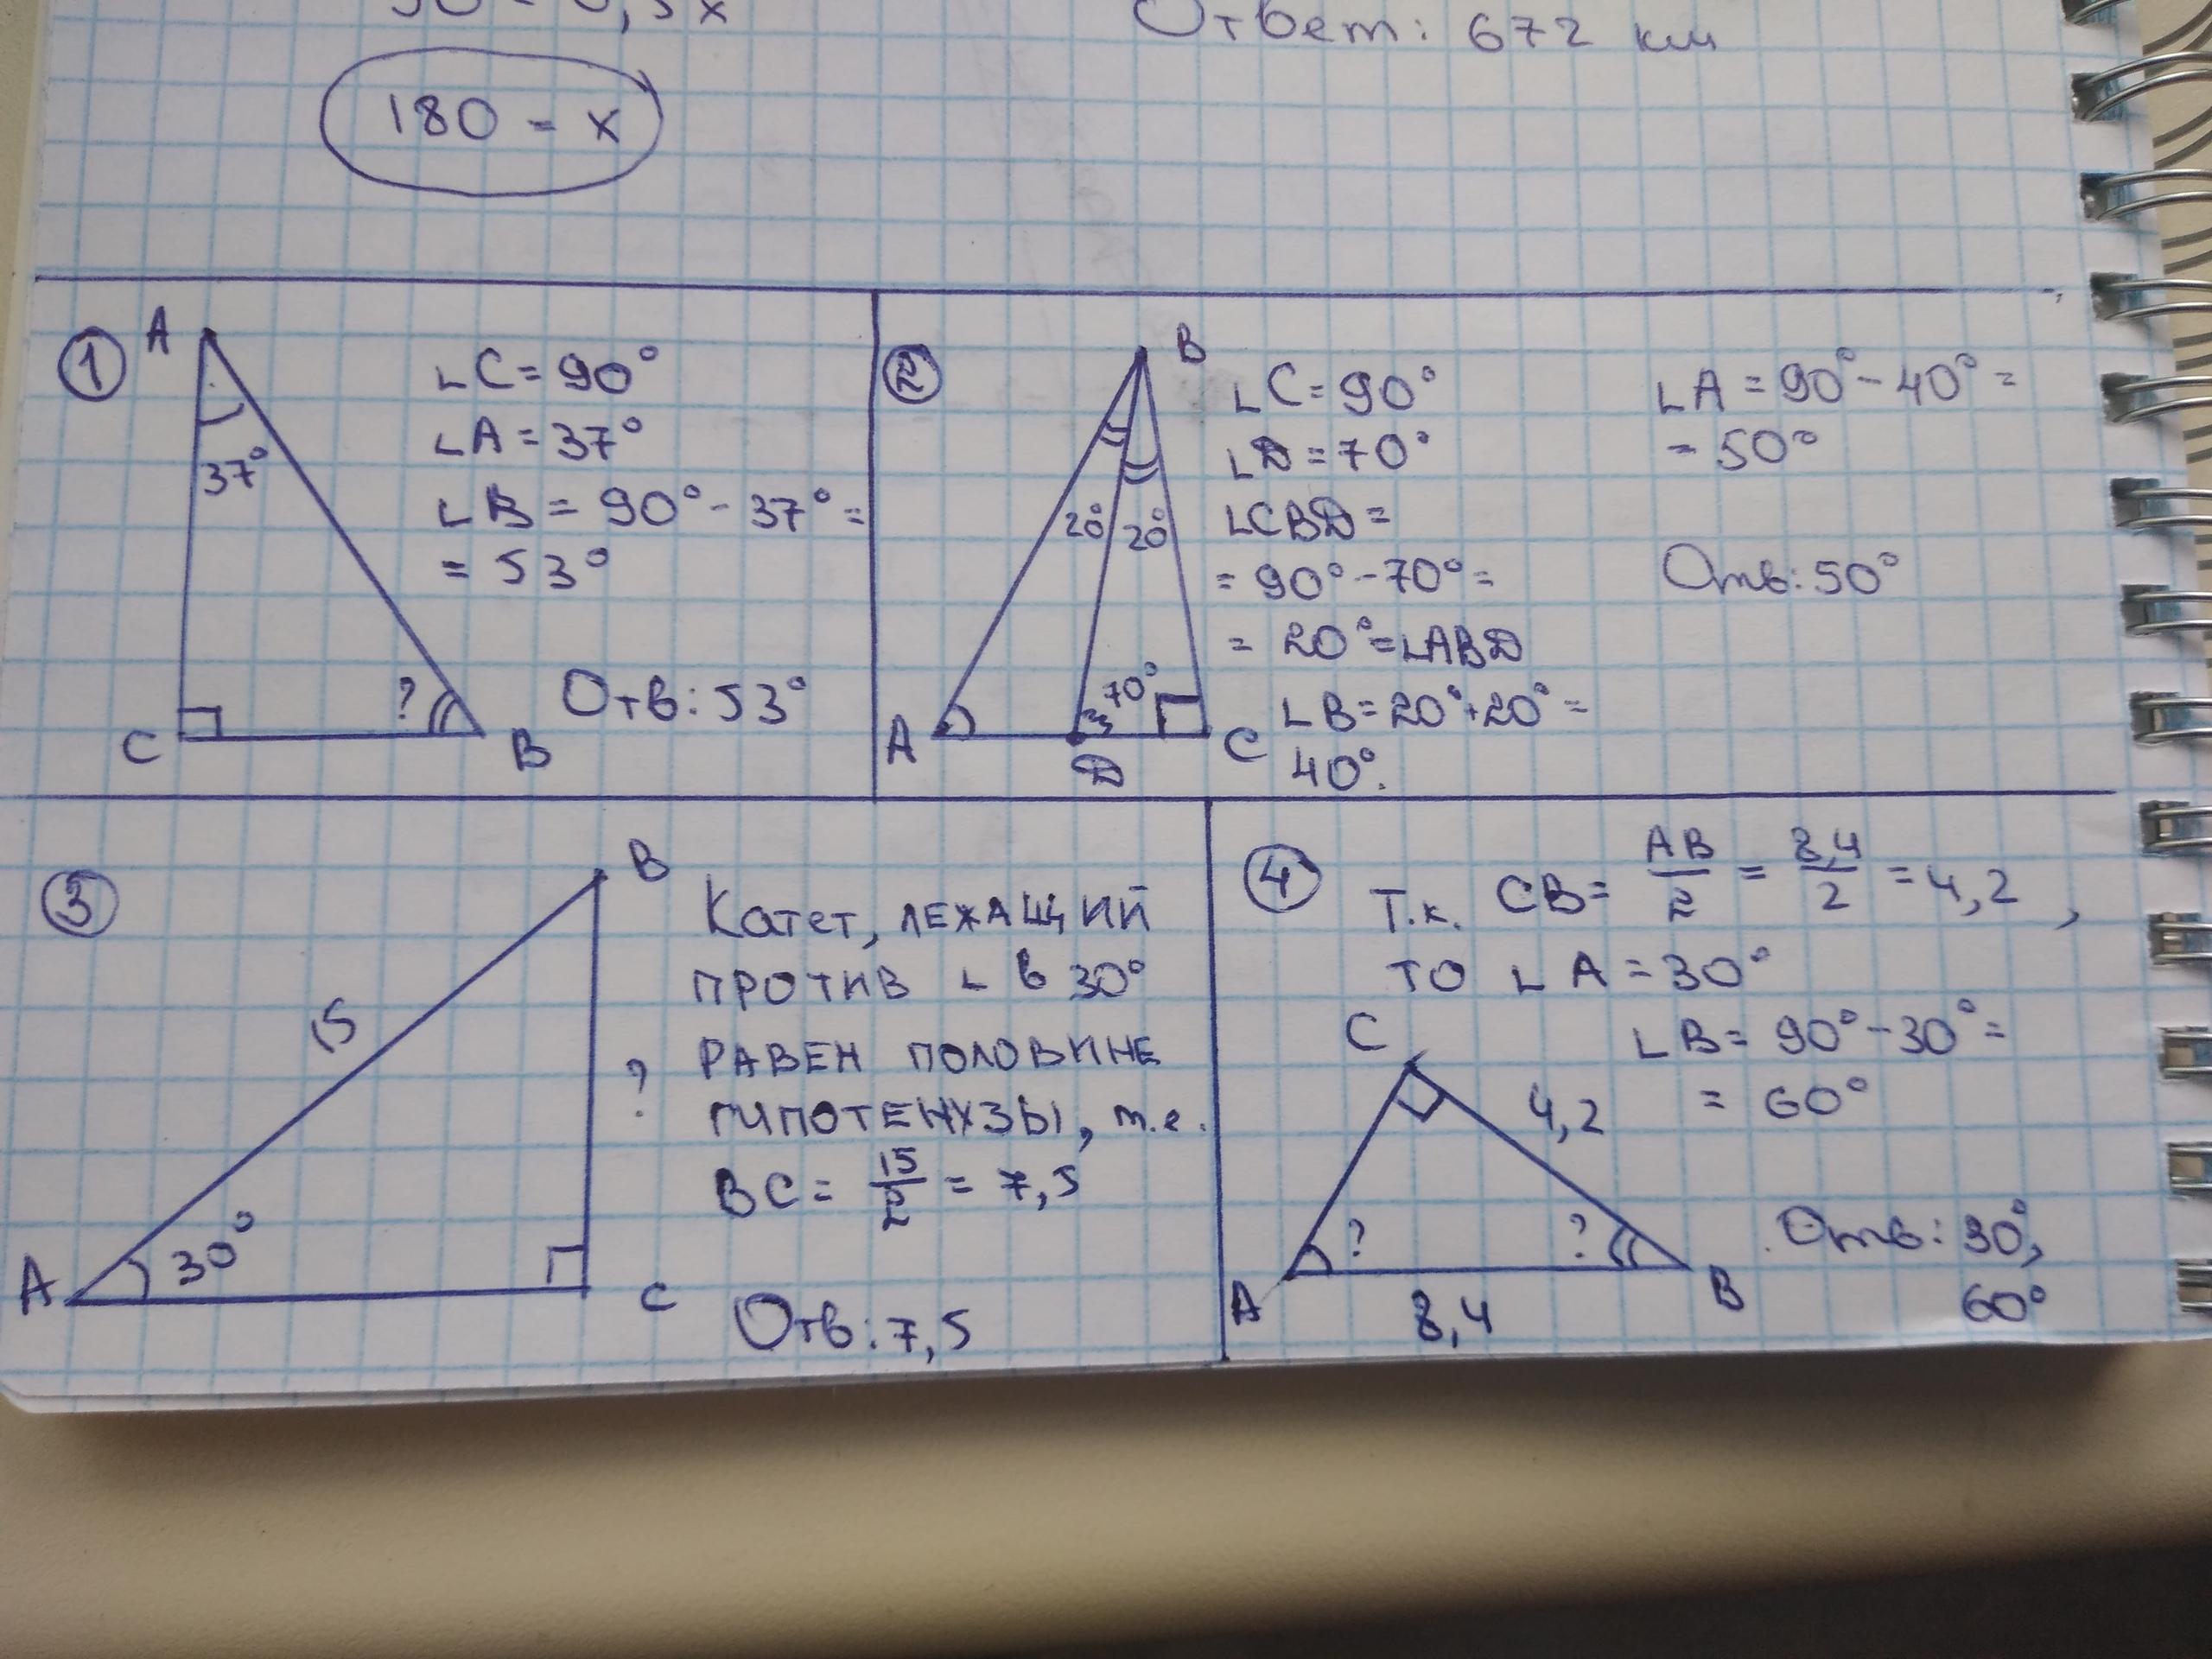 Ответ: 672 км
180 = x
1
A
37°
C
?
B
∟C = 90°
∟A = 37°
∟B = 90° - 37° =
= 53°
Отв: 53°
2
B
20° 20°
70°
A
D
C
∟C = 90°
∟D = 70°
∟CBD =
= 90° - 70° =
= 20° = ∟ABD
∟B = 20° + 20° =
40°.
∟A = 90° - 40° =
= 50°
Отв: 50°
3
B
15
?
A
30°
C
Катет, ЛЕЖАЩИЙ
ПРОТИВ ∟ в 30°
РАВЕН ПОЛОВИНЕ
ГИПОТЕНУЗЫ, т.е.
BC = 15/2 = 7,5
Отв: 7,5
4
Т.к. CB = AB/2 = 8,4/2 = 4,2 ,
ТО ∟A = 30°
∟B = 90° - 30° =
= 60°
C
4,2
? ?
A
B
8,4
Отв: 30°,
60°